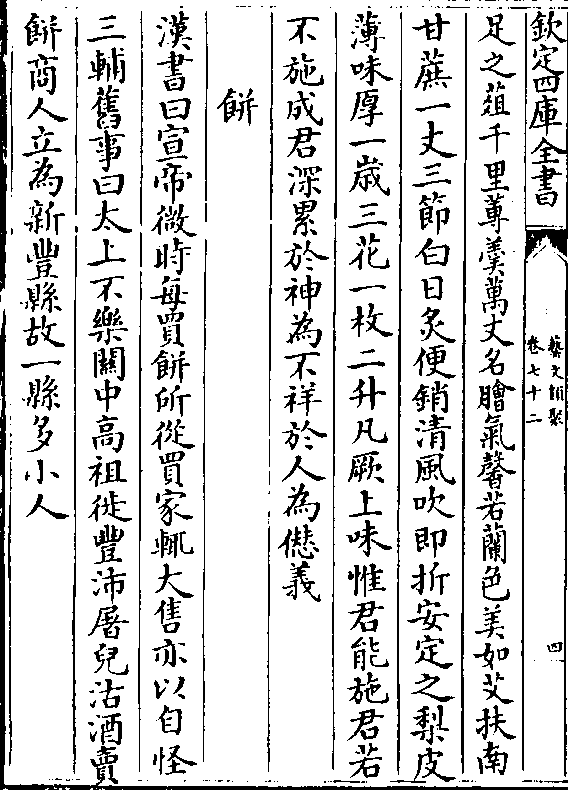 欽定四庫全書
藝文類聚
卷七十二
四
足之葅千里蓴羹萬丈名膾氣馨若蘭色美如艾扶南
甘蔗一丈三節白日炙便銷清風吹即折安定之梨皮
薄味厚一歳三花一枚二升凡厥上味惟君能施君若
不施成君深累於神為不祥於人為愆義
餅
漢書曰宣帝微時每買餅所從買家輒大售亦以自怪
三輔舊事曰太上不樂關中高祖徙豐沛屠兒沽酒賣
餅商人立為新豐縣故一縣多小人